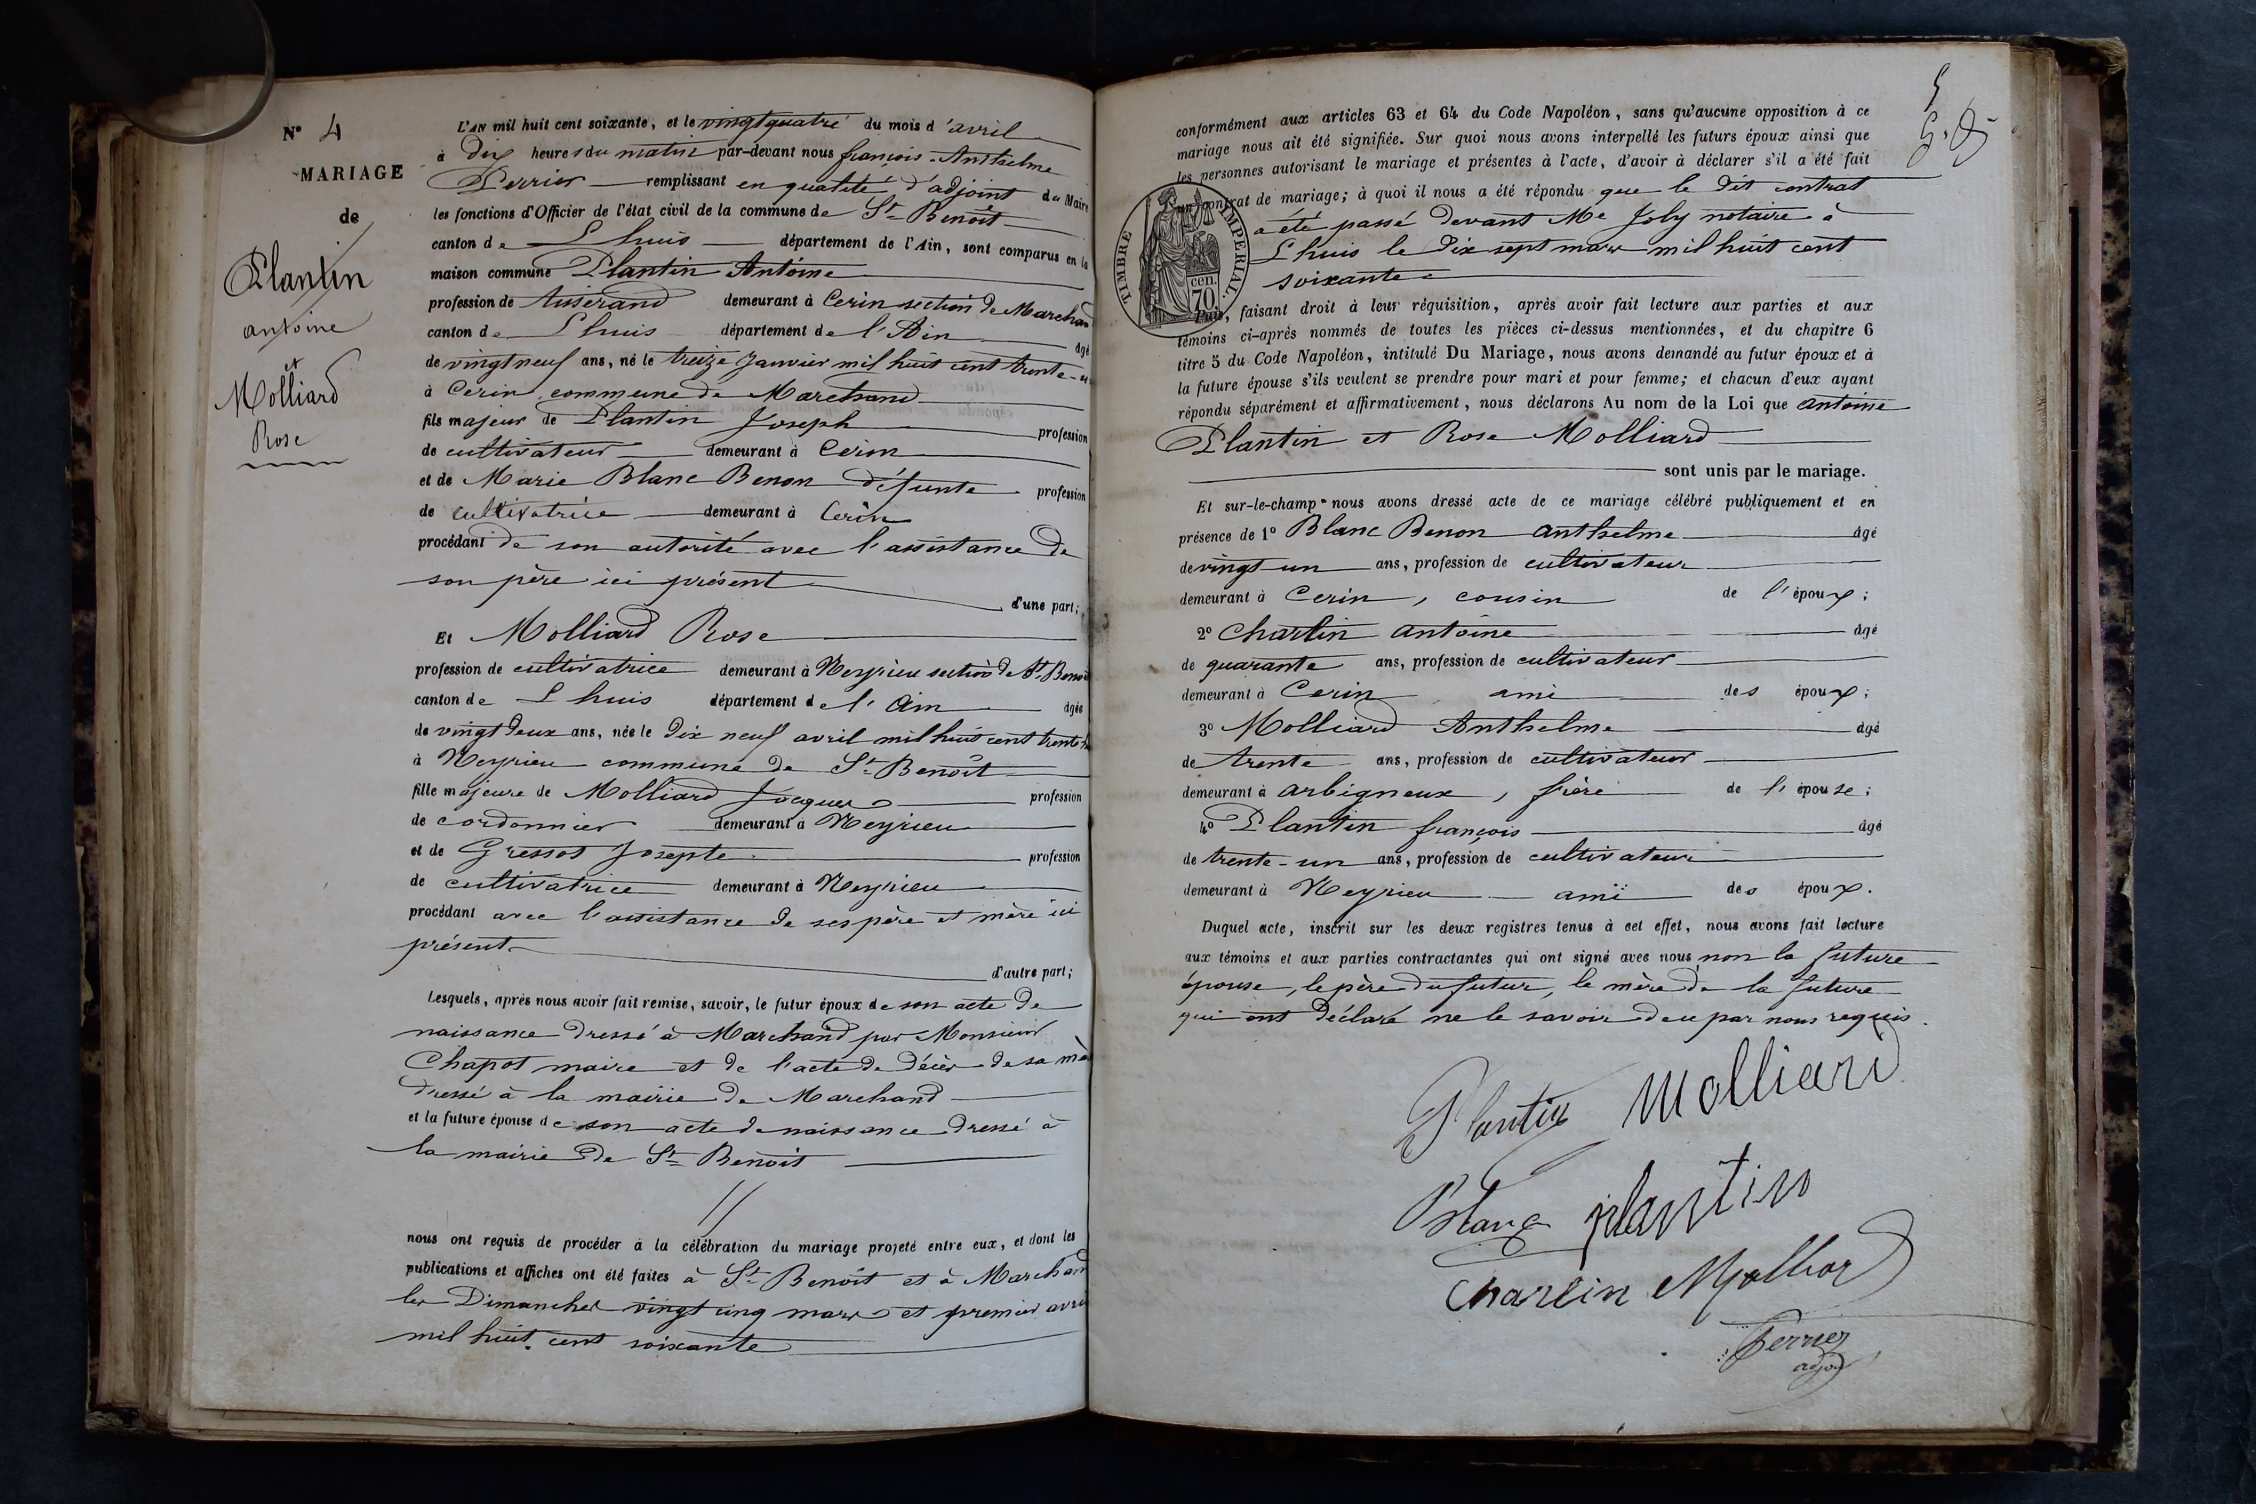 N° 4
MARIAGE
de
Plantin
antoine
et
Molliard
Rose
L'AN mil huit cent soixante, et le vingt quatre du mois d'avril
à dix heures du matin par-devant nous françois Anthelme
Perrier remplissant en qualité d'adjoint du Maire
les fonctions d'Officier de l'état civil de la commune de St Benoît
canton de Lhuis département de l'Ain, sont comparus en la
maison commune Plantin Antoine
profession de tisserand demeurant à Cerin section de Marchand
canton de Lhuis département de l'Ain âgé
de vingt neuf ans, né le treize Janvier mil huit cent trente-
à Cerin commune de Marchand
fils majeur de Plantin Joseph profession
de cultivateur demeurant à Cerin
et de Marie Blanc Benon défunte profession
de cultivatrice demeurant à Cerin
procédant de son autorité avec l'assistance de
son père ici présent
d'une part;
Et Molliard Rose
profession de cultivatrice demeurant à Neyrieu section de St Benoit
canton de Lhuis département de l'Ain âgée
de vingt deux ans, née le dix neuf avril mil huit cent trente
à Neyrieu commune de St Benoît
fille majeure de Molliard Jacques profession
de cordonnier demeurant à Neyrieu
et de Gressot Josepte profession
de cultivatrice demeurant à Neyrieu
procédant avec l'assistance de ses père et mère ici
présent
d'autre part;
Lesquels, après nous avoir fait remise, savoir, le futur époux de son acte de
naissance dressé à Marchand par Monsieur
Chapot maire et de l'acte de décès de sa mère
dressé à la mairie de Marchand
et la future épouse de son acte de naissance dressé à
la mairie de St Benoit
nous ont requis de procéder à la célébration du mariage projeté entre eux, et dont les
publications et affiches ont été faites à St Benoît et à Marchand
les Dimanches vingt cinq mars et premier avril
mil huit cent soixante
5
conformément aux articles 63 et 64 du Code Napoléon, sans qu'aucune opposition à ce
mariage nous ait été signifiée. Sur quoi nous avons interpellé les futurs époux ainsi que
les personnes autorisant le mariage et présentes à l'acte, d'avoir à déclarer s'il a été fait
un contrat de mariage; à quoi il nous a été répondu que le dit contrat
a été passé devant Me Joly notaire à
Lhuis le dix sept mars mil huit cent
soixante
TIMBRE IMPERIAL.
70 cen.
Puis, faisant droit à leur réquisition, après avoir fait lecture aux parties et aux
témoins ci-après nommés de toutes les pièces ci-dessus mentionnées, et du chapitre 6
titre 5 du Code Napoléon, intitulé Du Mariage, nous avons demandé au futur époux et à
la future épouse s'ils veulent se prendre pour mari et pour femme; et chacun d'eux ayant
répondu séparément et affirmativement, nous déclarons Au nom de la Loi que Antoine
Plantin et Rose Molliard
sont unis par le mariage.
Et sur-le-champ nous avons dressé acte de ce mariage célébré publiquement et en
présence de 1° Blanc Benon Anthelme âgé
de vingt un ans, profession de cultivateur
demeurant à Cerin, cousin de l'époux;
2° Charlin Antoine âgé
de quarante ans, profession de cultivateur
demeurant à Cerin ami des époux;
3° Molliard Anthelme âgé
de trente ans, profession de cultivateur
demeurant à Arbigneux, frère de l'épouse;
4° Plantin françois âgé
de trente-un ans, profession de cultivateur
demeurant à Neyrieu ami des époux.
Duquel acte, inscrit sur les deux registres tenus à cet effet, nous avons fait lecture
aux témoins et aux parties contractantes qui ont signé avec nous non la future
épouse, le père du futur, le mère de la future
qui ont déclaré ne le savoir de ce par nous requis.
Plantin Molliard
Blanc plantin
Charlin Molliard
Perrier
adjoint